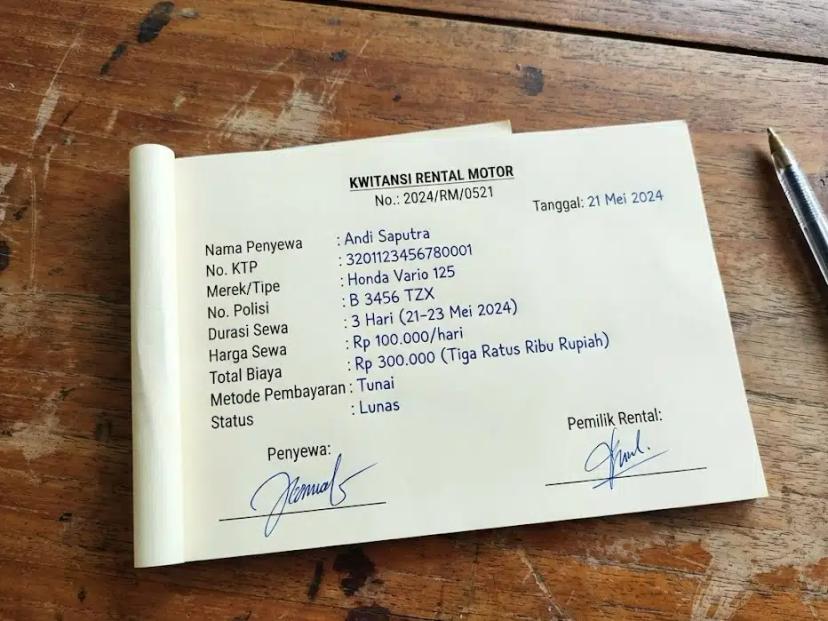 KWITANSI RENTAL MOTOR
No.: 2024/RM/0521
Tanggal: 21 Mei 2024
Nama Penyewa : Andi Saputra
No. KTP : 3201123456780001
Merek/Tipe : Honda Vario 125
No. Polisi : B 3456 TZX
Durasi Sewa : 3 Hari (21-23 Mei 2024)
Harga Sewa : Rp 100.000/hari
Total Biaya : Rp 300.000 (Tiga Ratus Ribu Rupiah)
Metode Pembayaran : Tunai
Status : Lunas
Penyewa:
Pemilik Rental: